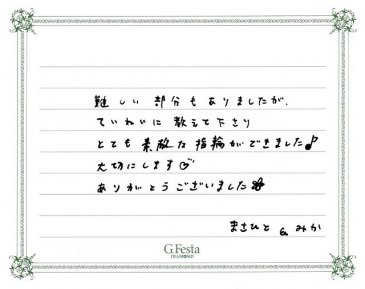 難しい部分もありましたが、
ていねいに教えて下さり
とても素敵な指輪ができました♪
大切にします
ありがとうございました
まさひと & みか
G.Festa
DIAMOND